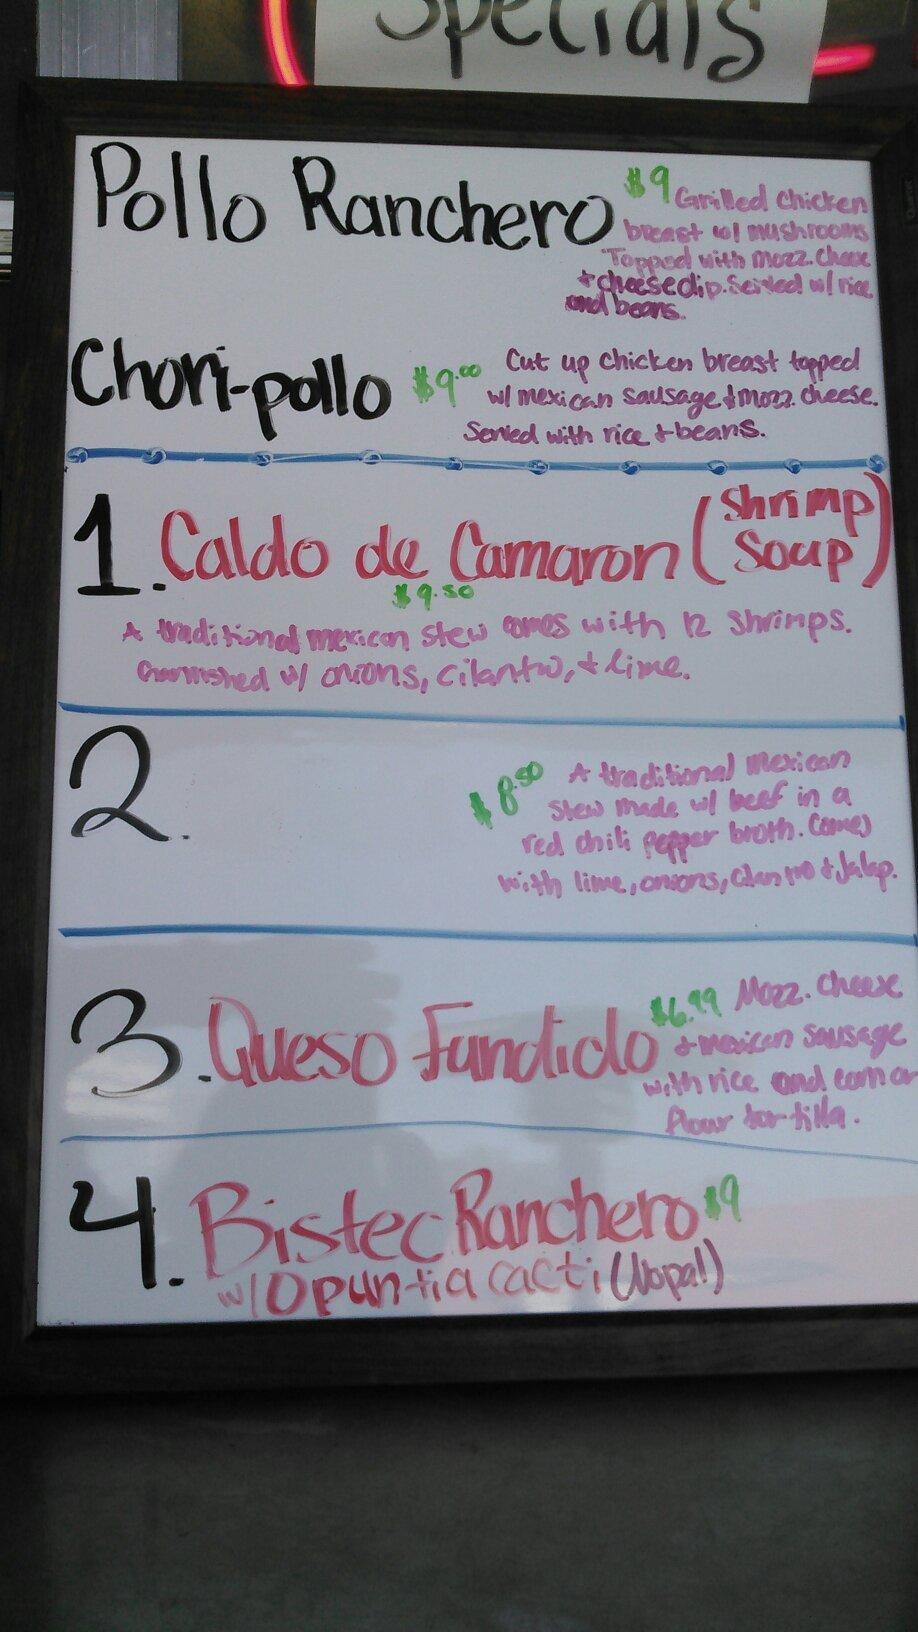 Specials
Pollo Ranchero $9 Grilled Chicken
breast w/ mushrooms
Topped with Mozz. Cheese
+ cheese dip. Served w/ rice
and beans.
Chori-pollo $9.00 Cut up chicken breast topped
w/ mexican sausage + mozz. cheese.
Served with rice + beans.
1. Caldo de Camaron (Shrimp
Soup)
$9.50
A traditional mexican stew comes with 12 shrimps.
Garnished w/ onions, cilantro, + lime.
2.
$8.50 A traditional Mexican
Stew made w/ beef in a
red chili pepper broth. Comes
with lime, onions, cilantro + Jalap.
3. Queso Fundido $6.99 Mozz. Cheese
+ mexican sausage
with rice and corn or
flour tortilla.
4. Bistec Ranchero $9
w/ Opuntia cacti (Nopal)